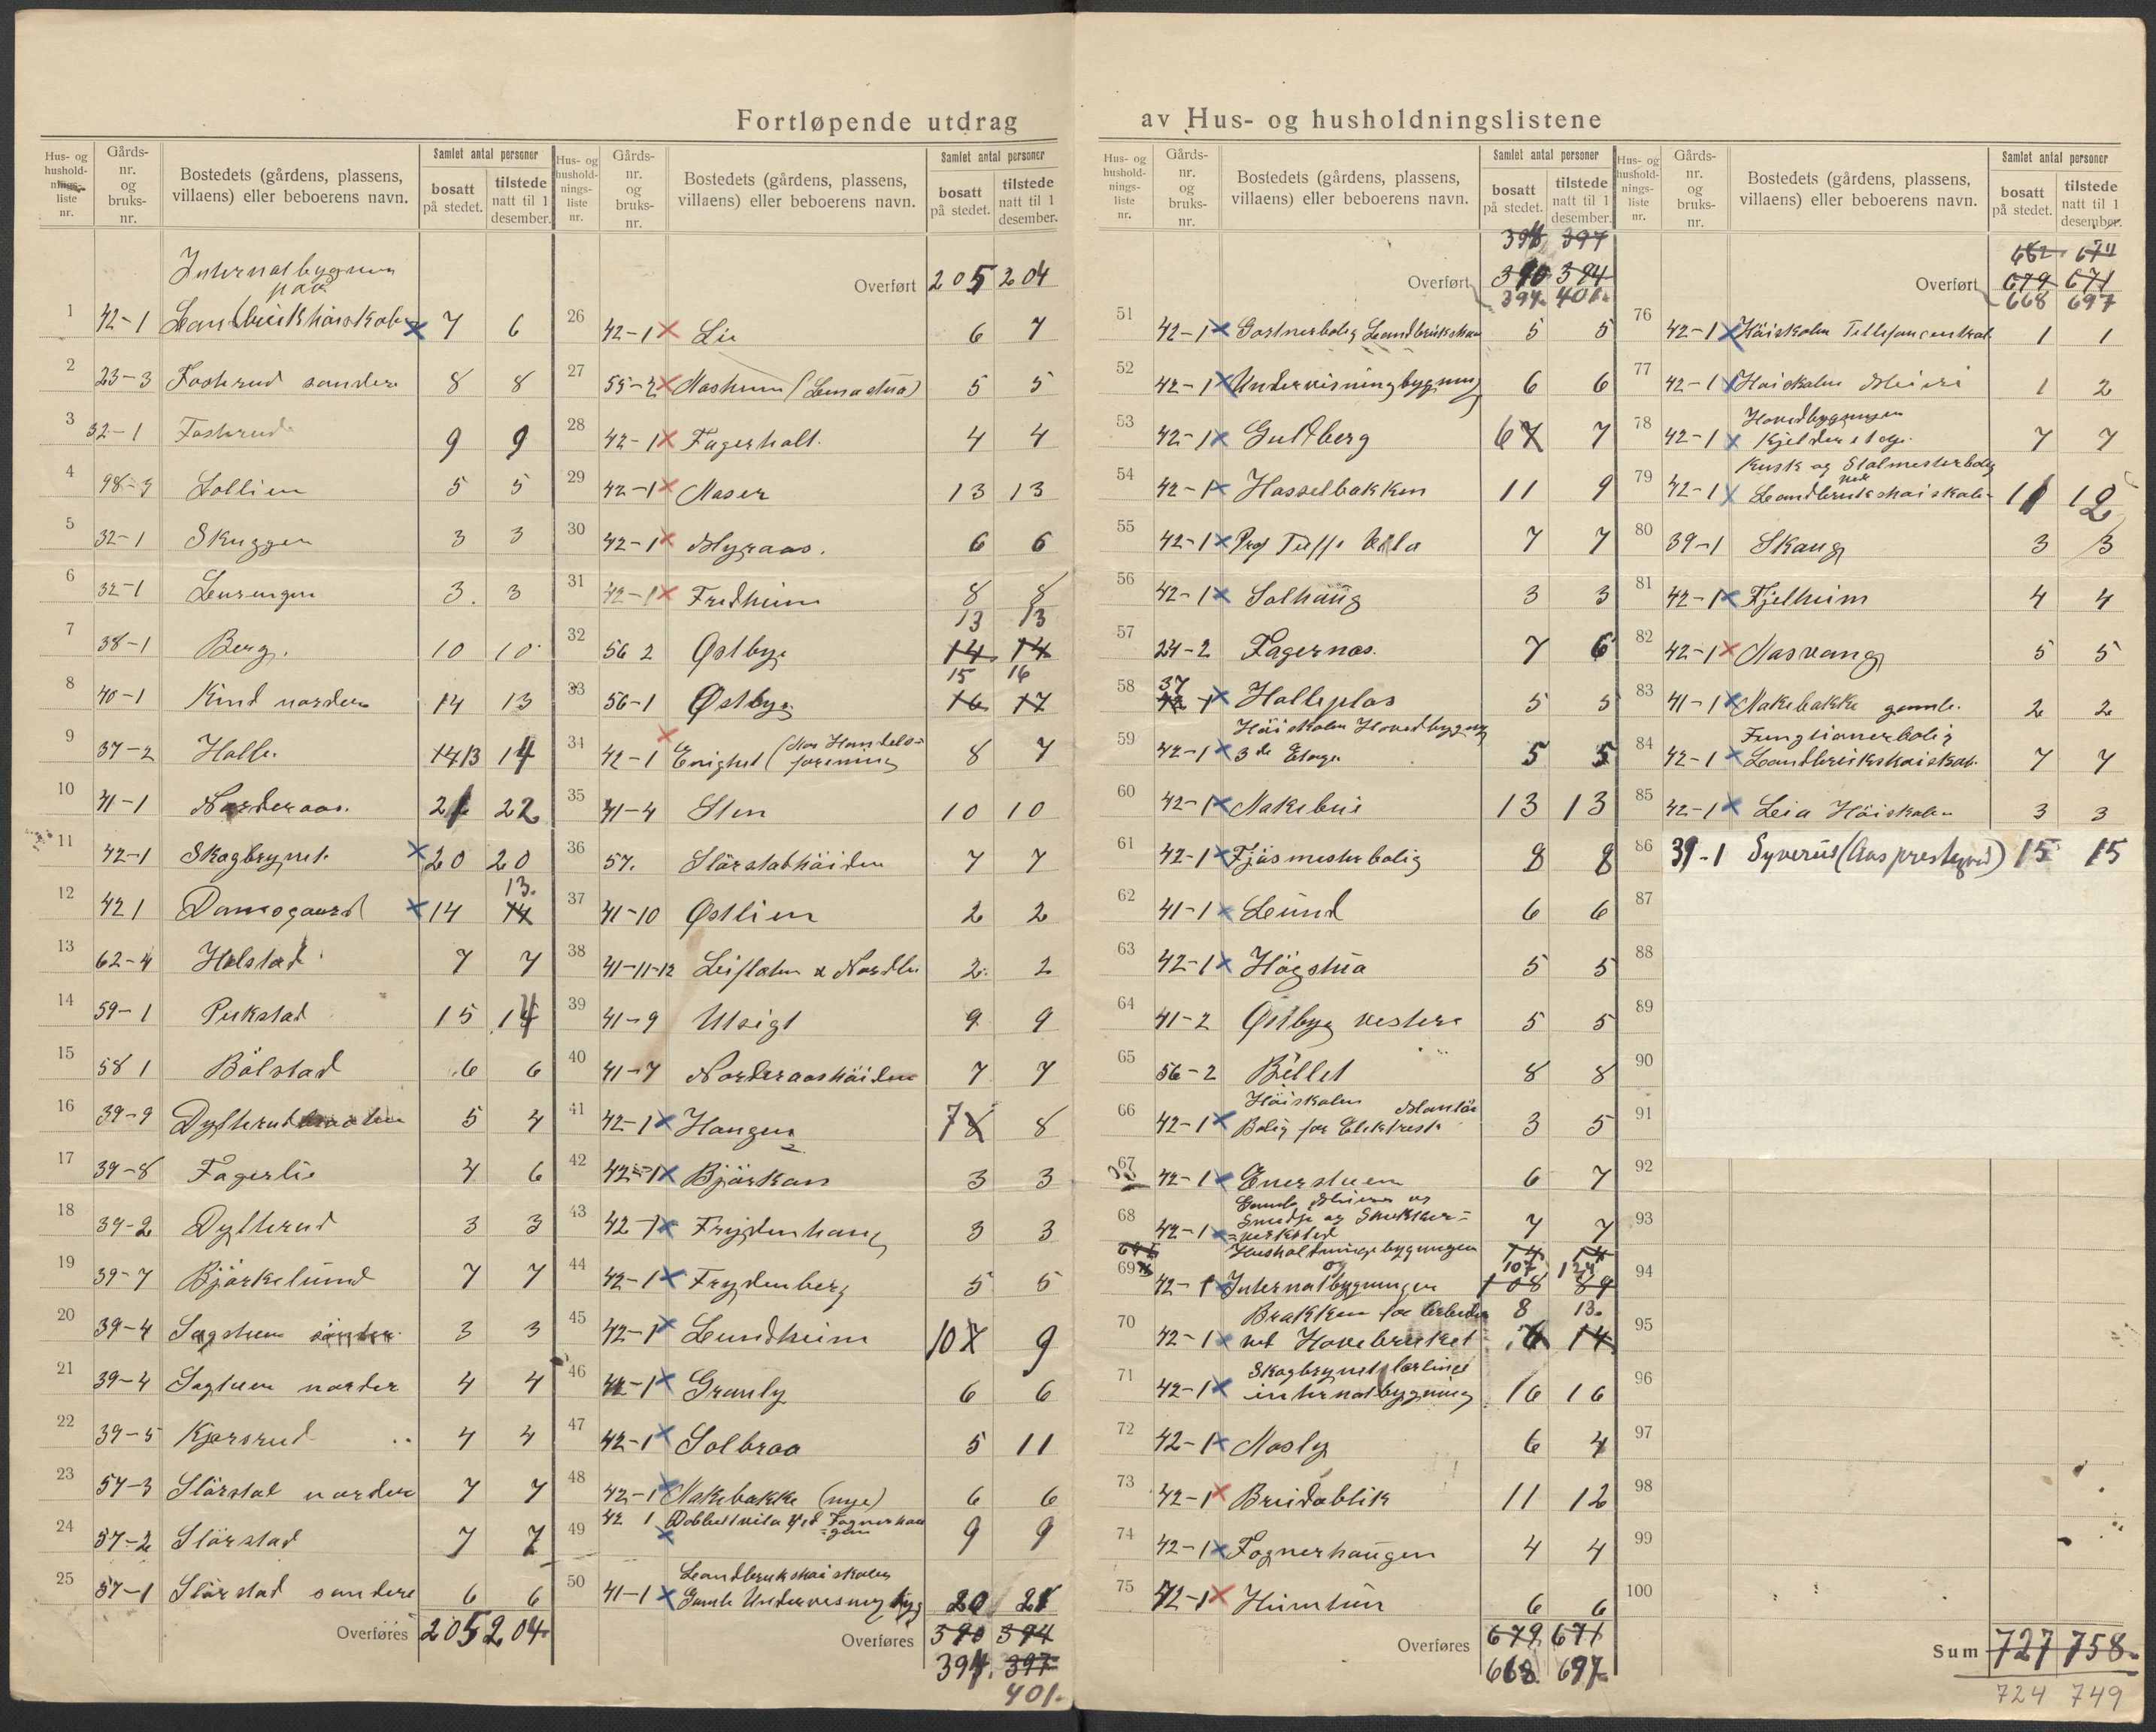 Fortløpende utdrag
av Hus- og husholdningslistene
Hus- og hushold-nings-liste nr. Gårds-nr. og bruks-nr. Bostedets (gårdens, plassens, villaens) eller beboerens navn. Samlet antal personer bosatt på stedet. tilstede natt til 1 desember.
Internatbygnin
paa
1 42-1 7 6
2 23-3 Foskrud søndre 8 8
3 32-1 Foskrud 9 9
4 98-3 Sollien 5 5
5 32-1 Skuggen 3 3
6 32-1 3. 3
7 38-1 Berg. 10 10
8 40-1 Rud nordre 14 13
9 37-2 Holle 14 13 14
10 41-1 Norderaas. 22
11 42-1 Skogbrynet 20 20
13.
12 42 1 Damsgaard 14 14
13 62-4 Holstad 7 7
14 59-1 15 14
15 58 1 Bölstad 6 6
16 39-9 5 4
17 39-8 Fagerlie 4 6
18 39-2 Dysterud 3 3
19 39-7 Björkelund 7 7
20 39-4 3 3
21 39-4 nordre 4 4
22 39-5 4 4
23 57-3 Störstad nordre 7 7
24 57-2 Störstad 7 7
25 57-1 Störstad søndre 6 6
Overføres 205 204
Hus- og hushold-nings-liste nr. Gårds-nr. og bruks-nr. Bostedets (gårdens, plassens, villaens) eller beboerens navn. Samlet antal personer bosatt på stedet. tilstede natt til 1 desember.
Overført 205 204
26 42-1 Lie 6 7
27 55-2 5 5
28 42-1 Fagerholt. 4 4
29 42-1 Aaser 13 13
30 42-1 Myraas. 6 6
31 42-1 Fredheim 8 8
13 13
32 56 2 Østby 14 14
15 16
33 56-1 Østby 16 17
34 42-1 Enighet (Aas Handels-
forening 8 7
35 41-4 Sten 10 10
36 57. Störstadhöiden 7 7
37 41-10 Østlien 2 2
38 41-11-12 2. 2
39 41-9 Utsigt 9 9
40 41-7 Norderaashöiden 7 7
41 42-1 Haugen 7 8 8
42 42-1 Björkaas 3 3
43 42-1 Frydenhaug 3 3
44 42-1 Frydenberg 5 5
45 42-1 Lundheim 10 9
46 42-1 Granly 6 6
47 42-1 Solbraa 5 11
48 42-1 Aakebakke (nye) 6 6
49 42 1 9 9
Landbrukshöiskolen
50 41-1 Gamle Undervisning byg 20 21
Overføres 390 394
394. 397
401.
Hus- og hushold-nings-liste nr. Gårds-nr. og bruks-nr. Bostedets (gårdens, plassens, villaens) eller beboerens navn. Samlet antal personer bosatt på stedet. tilstede natt til 1 desember.
397
Overført 390 394
394. 401.
51 42-1 Gartnerbolig 5 5
52 42-1 Undervisningbygning 6 6
53 42-1 Guldberg 6 7 7
54 42-1 Hasselbakken 11 9
55 42-1 Prof Tuffs Villa 7 7
56 42-1 Solhaug 3 3
57 24-2 Fagernæs. 7 6
37
58 Holleplas 5 5
Höiskolen Hovedbygning
59 42-1 3de Etage 5 5
60 42-1 Aakebue 13 13
61 42-1 Fjösmesterbolig 8 8
62 41-1 Lund 6 6
63 42-1 Högstua 5 5
64 41-2 Østby vestre 5 5
65 56-2 Billet 8 8
Höiskolen
66 42-1 Bolig for Elektrisk Montör 3 5
67 42-1 Enerstuen 6 7
68 42-1 Gamle Meieri og
Smedje og Snekker-
verksted 7 7
Husholdningsbygningen
og
107 124
69 42-1 Internatbygningen 108 89
Brakken for Arbeider 8 13.
70 42-1 ved Hovebruket 14
Skogbrynet lærlings
71 42-1 internatbygning 16 16
72 42-1 Aasly 6 4
73 42-1 Breidablik 11 12
74 42-1 Fognerhaugen 4 4
75 42-1 Heimtun 6 6
Overføres 679 671
668 697
Hus- og hushold-nings-liste nr. Gårds-nr. og bruks-nr. Bostedets (gårdens, plassens, villaens) eller beboerens navn. Samlet antal personer bosatt på stedet. tilstede natt til 1 desember.
682 674
Overført 679 671
668 697
76 42-1 Höiskolen Tellefoncentral 1 1
77 42-1 Höiskolen Meieri 1 2
Hovedbygningen
78 42-1 Kjelderetage. 7 7
Kusk og Stalmesterbolig
ved
79 42-1 Landbrukshöiskolen 12
80 39-1 Skaug 3 3
81 42-1 Fjelheim 4 4
82 42-1 Aasvang 5 5
83 41-1 Aakebakke gamle. 2 2
Fungtionerbolig
84 42-1 Landbrukshöiskol. 7 7
85 42-1 Leia Höiskolen 3 3
86 39-1 Syverud (Aas prestegård) 15 15
87
88
89
90
91
92
93
94
95
96
97
98
99
100
Sum 727 758.
724 749